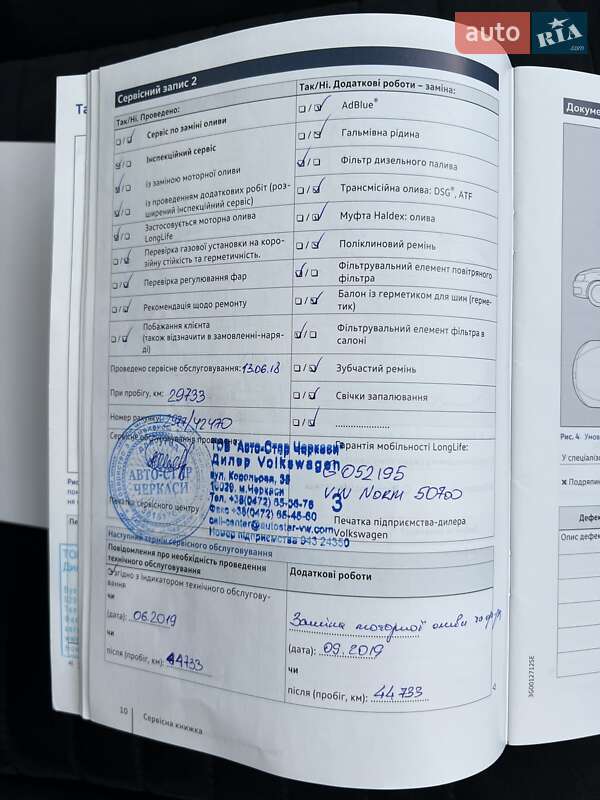 auto RIA .com
Сервісний запис 2
Так/Ні. Проведено:
Сервіс по заміні оливи
Інспекційний сервіс
із заміною моторної оливи
із проведенням додаткових робіт (роз-
ширений інспекційний сервіс)
Застосовується моторна олива
LongLife
Перевірка газової установки на коро-
зійну стійкість та герметичність.
Перевірка регулювання фар
Рекомендація щодо ремонту
Побажання клієнта
(також відзначити в замовленні-наря-
ді)
Проведено сервісне обслуговування: 13.06.18
При пробігу, км: 29733
Номер рахунку: /42470
Сервісне обслуговування проведено
Печатка сервісного центру
Так/Ні. Додаткові роботи – заміна:
AdBlue®
Гальмівна рідина
Фільтр дизельного палива
Трансмісійна олива: DSG®, ATF
Муфта Haldex: олива
Поліклиновий ремінь
Фільтрувальний елемент повітряного
фільтра
Балон із герметиком для шин (герме-
тик)
Фільтрувальний елемент фільтра в
салоні
Зубчастий ремінь
Свічки запалювання
Гарантія мобільності LongLife:
G 052195
VW NORM 50700
Печатка підприємства-дилера
Volkswagen
АВТО-СТАР
ЧЕРКАСИ
ТОВ "Авто-Стар Черкаси
Дилер Volkswagen
вул. Корольова, 38
18029, м.Черкаси
3
Тел. +38(0472) 65-36-76
Факс +38(0472) 65-46-60
call-center@autostar-vw.com
Номер підприємства 943 24350
Наступний термін сервісного обслуговування
Повідомлення про необхідність проведення
технічного обслуговування
Згідно з індикатором технічного обслугову-
вання
чи
(дата): 06.2019
чи
після (пробіг, км): 44733
Додаткові роботи
Заміна моторної оливи та
(дата): 09.2019
чи
після (пробіг, км): 44 733
10 Сервісна книжка
Рис. 4
У спеціаліз
Опис дефек
3G0012712SE